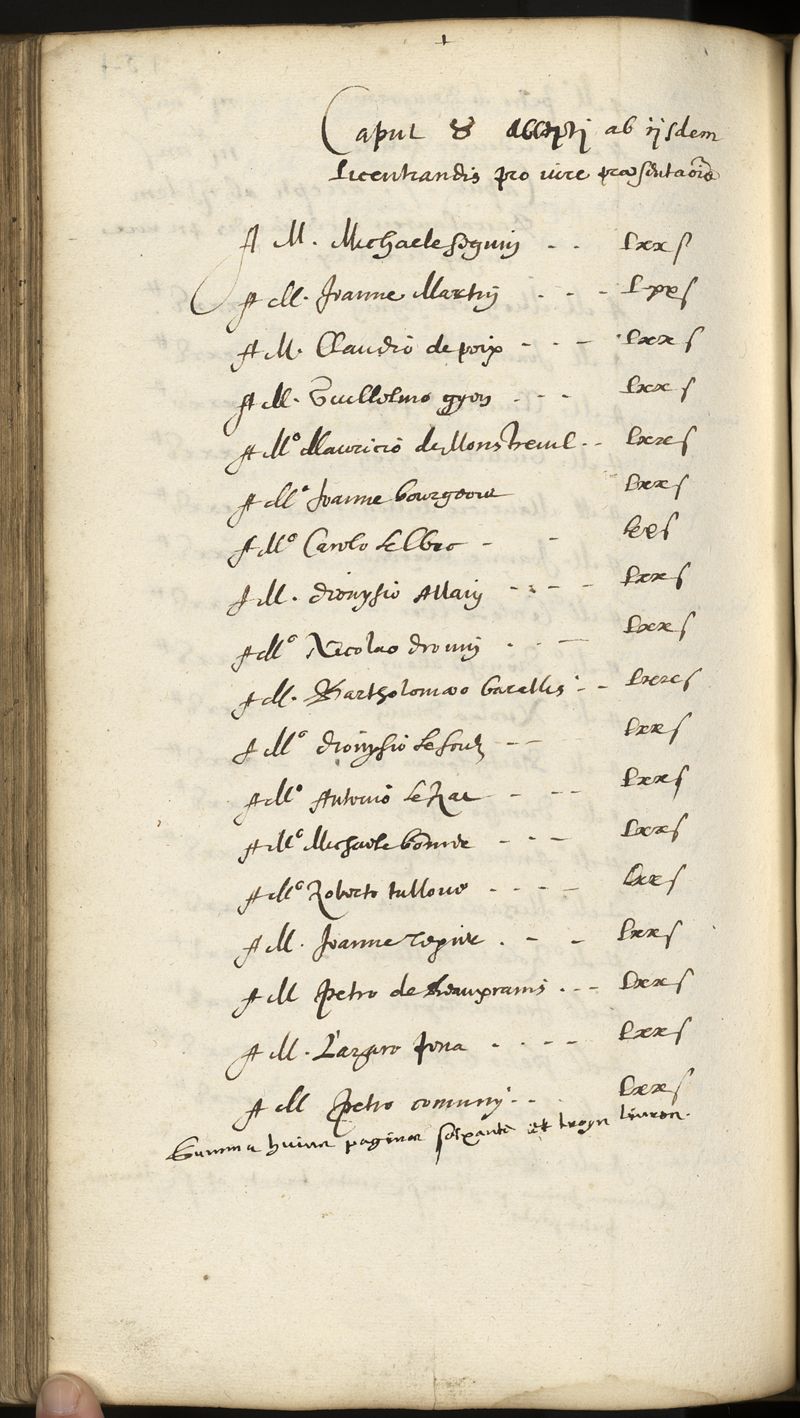 Caput 8 accepti ab iisdem
Licentiandis pro iure præsentaoīs
A M. Michaele Seguin - - Lxx s
A M. Joanne Martin - - - Lxx s
A M. Claudio de poix - - - Lxx s
A M. Guillelmo gyon - - - Lxx s
A M° Mauricio de Monstreuil - - Lxx s
A M° Joanne bourgeois Lxx s
A M° Carolo Le Clerc - - Lxx s
A M. dionysio Allain - - - - Lxx s
A M° Nicolao drouin - - - Lxx s
A M. Bartholomæo - - Lxx s
A M° dionysio Le - - Lxx s
A M° Antonio Le Rat - - - Lxx s
A M° Michaele - - - Lxx s
A M° Roberto tulloue - - - - Lxx s
A M. Joanne - - - Lxx s
A M Petro de Beauxramis - - - Lxx s
A M. Lazaro Jona - - - - Lxx s
A M Petro comuny - - Lxx s
Summa huius paginæ soixante et troys liures.